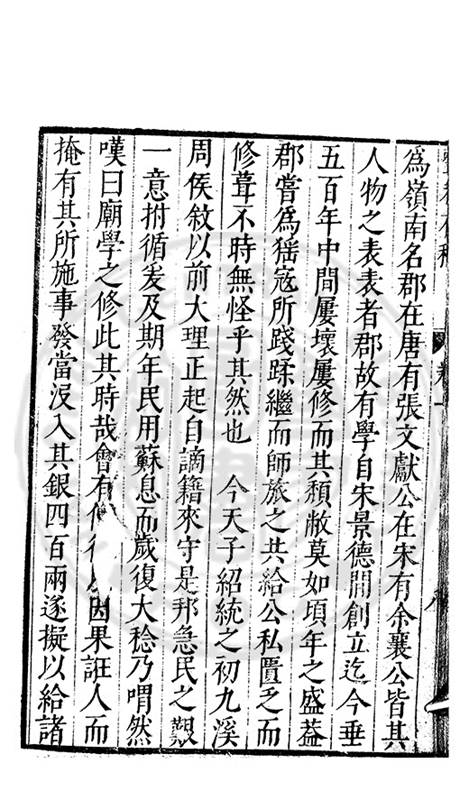 為嶺南名郡在唐有張文獻公在宋有余襄公皆其
人物之表表者郡故有學自宋景德開創立迄今垂
五百年中間屢壞屢修而其頹敝莫如項年之盛葢
郡嘗為猺寇所踐蹂繼而師旅之共給公私匱乏而
修葺不時無怪乎其然也 今天子紹統之初九溪
周侯敘以前大理正起自謫籍來守是邦急民之艱
一意拊循爰及期年民用蘇息而歲復大稔乃喟然
嘆曰廟學之修此其時哉會有 因果誑人而
掩有其所施事發當沒入其銀四百兩遂擬以給諸